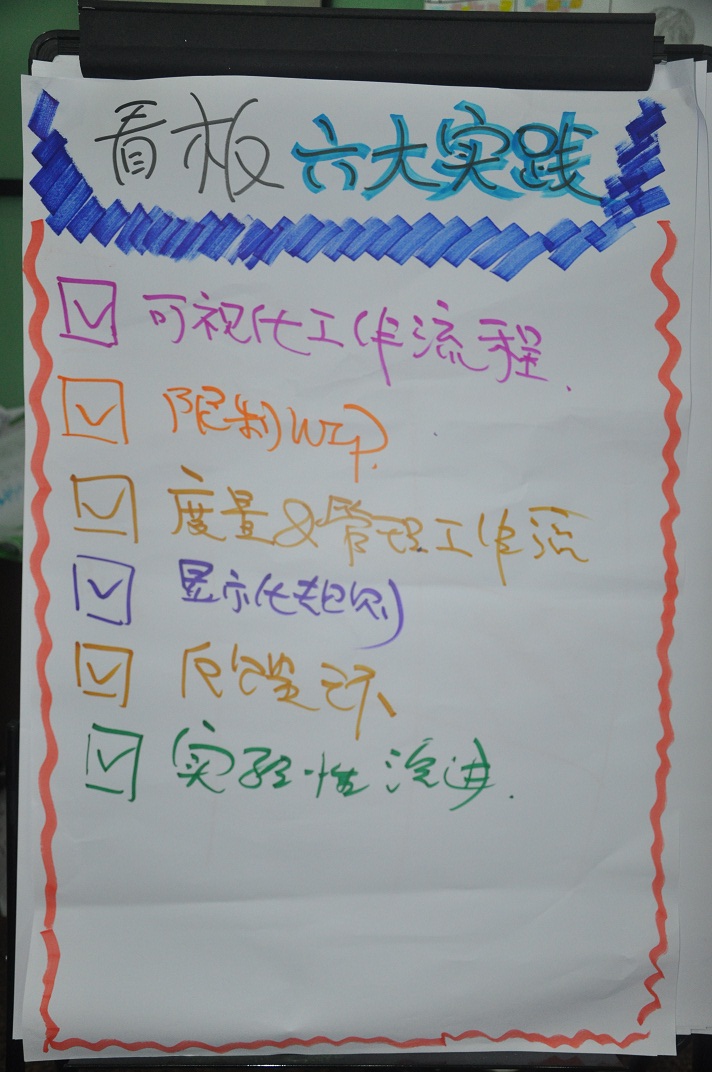 看板六大实践
可视化工作流程.
限制WIP.
度量&管理工作流
显示化规则
反馈环
实验性演进.